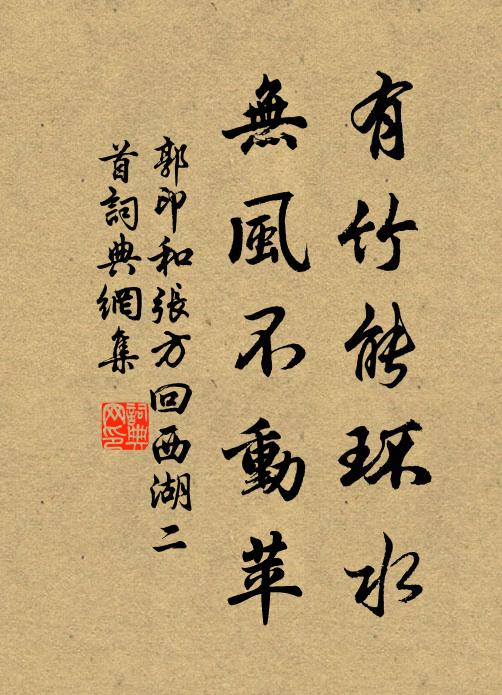 有竹能环水
無風不動苹
郭印和張方回西湖二
首詞典網集
詞典
网印